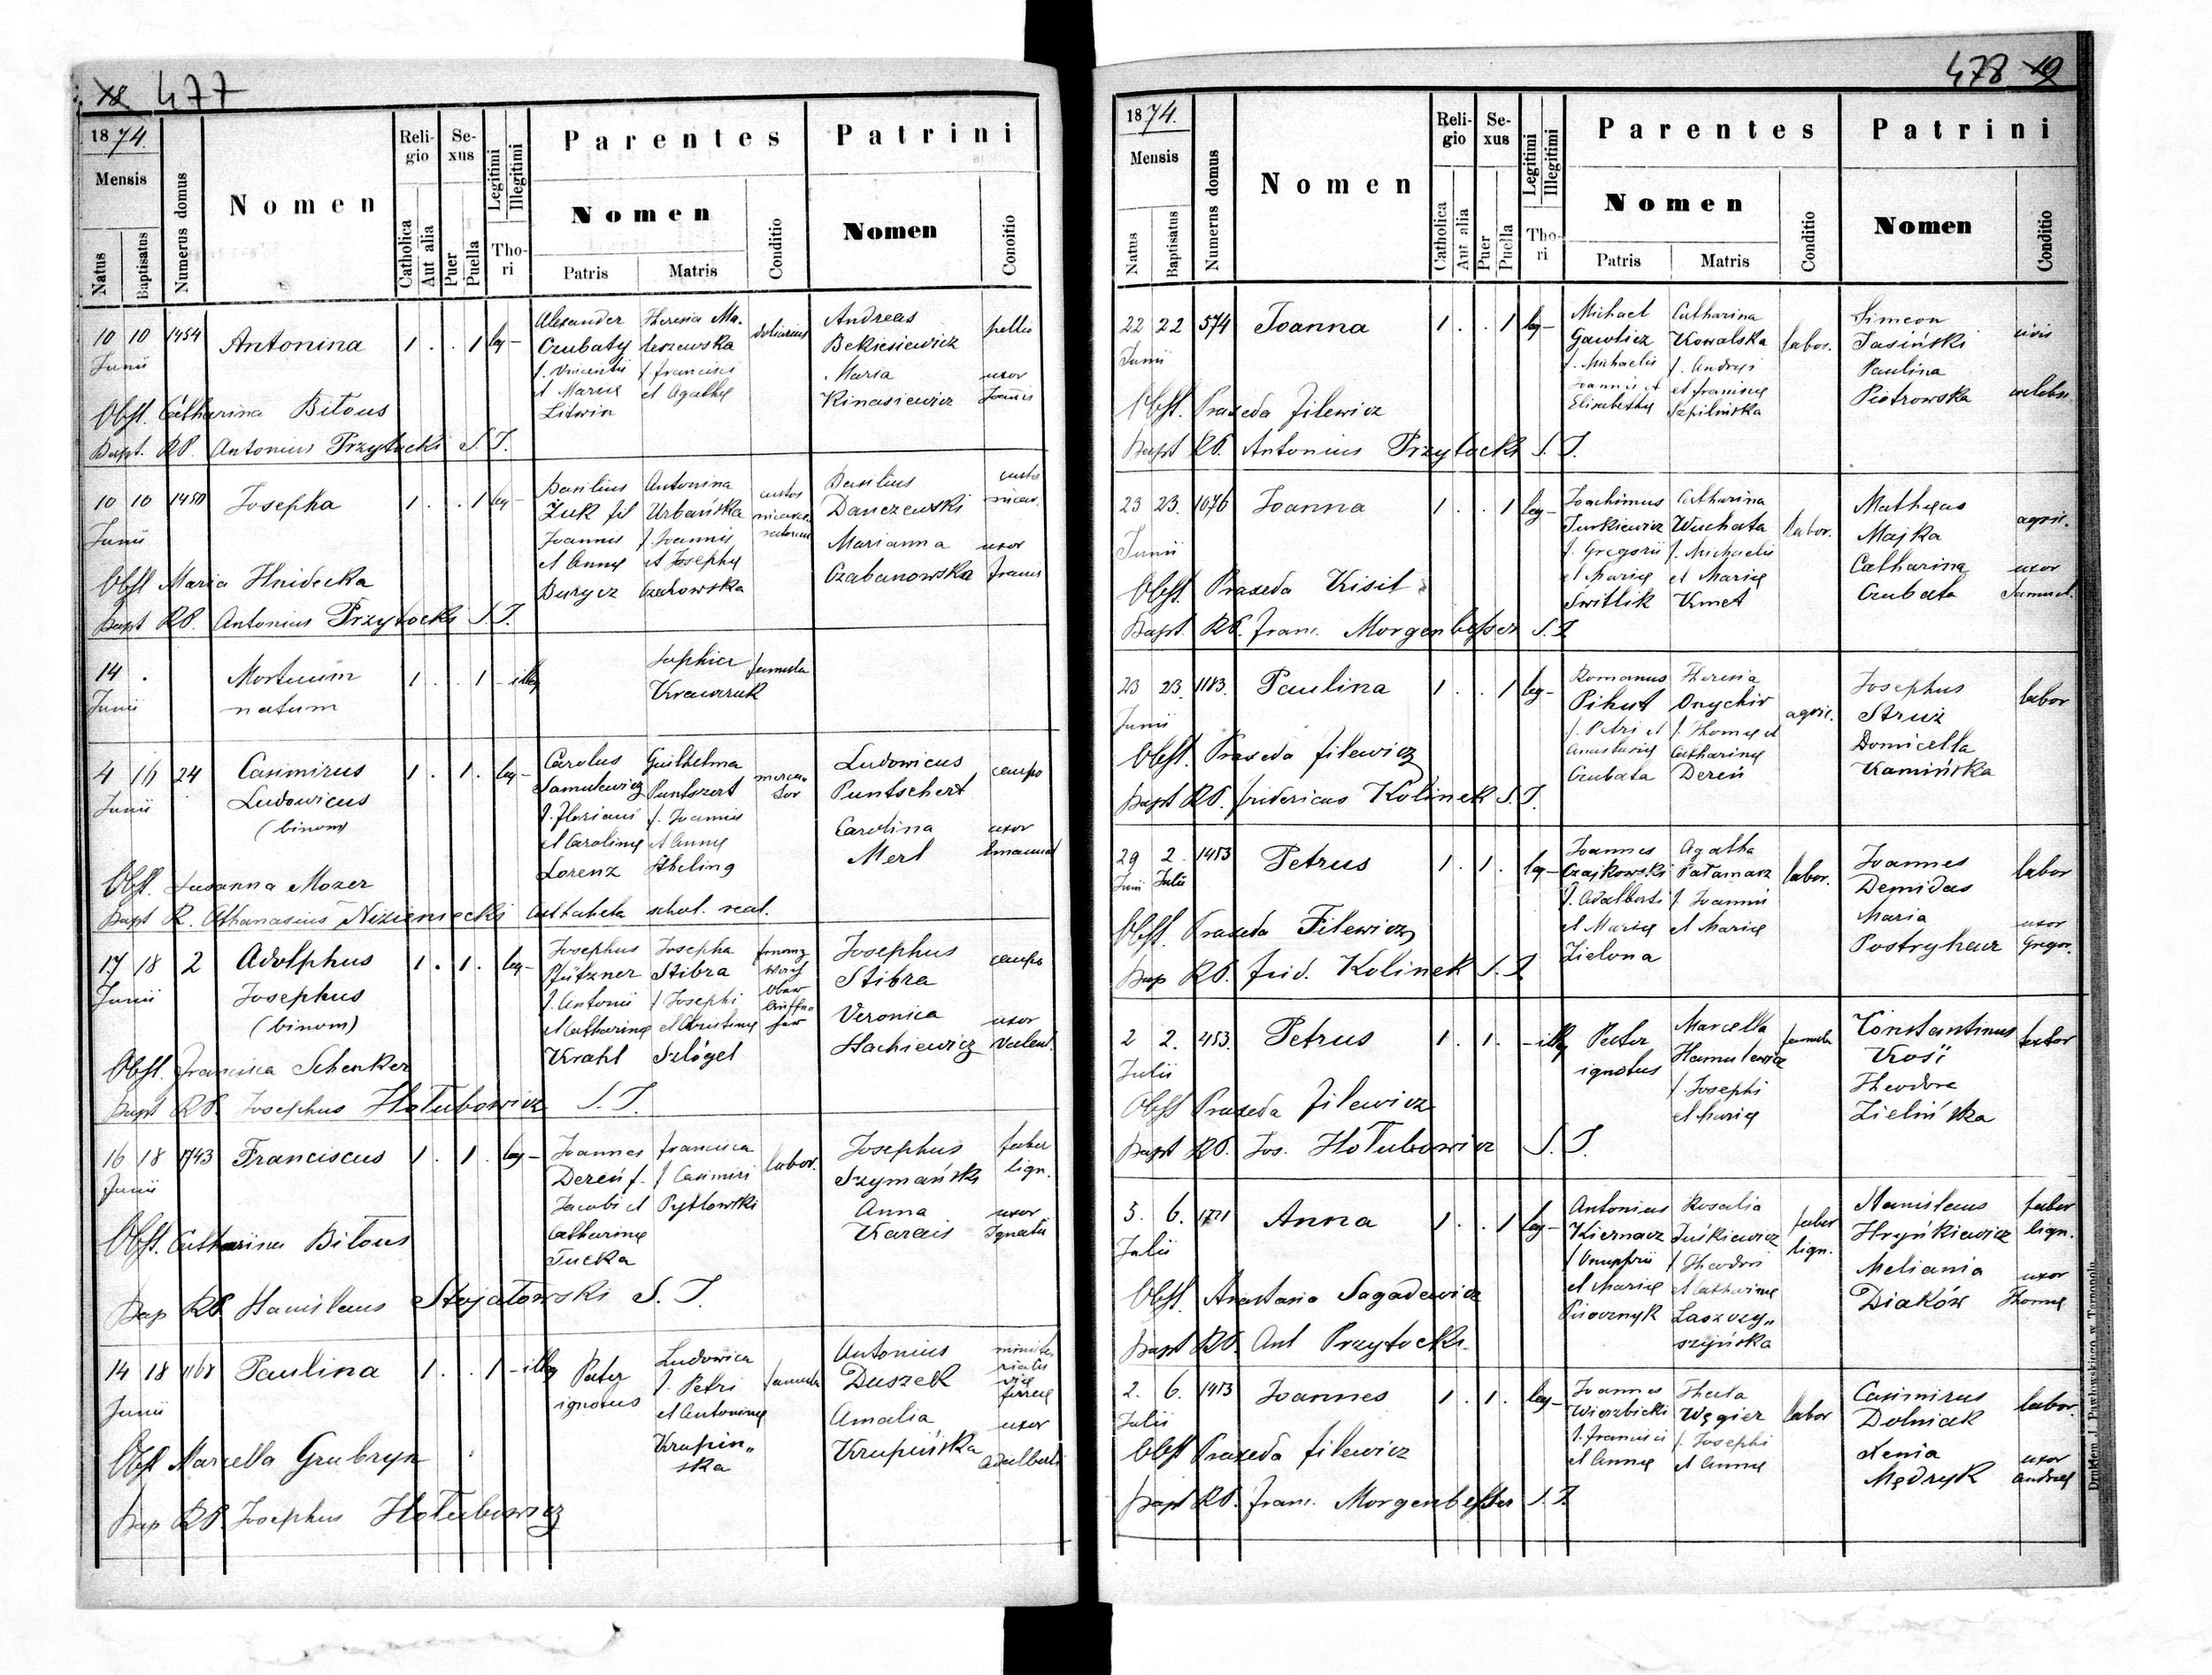 477
1874.
Mensis
Natus
Baptisatus
Numerus domus
Nomen
Religio
Catholica
Aut alia
Sexus
Puer
Puella
Legitimi
Illegitimi
Thori
Parentes
Nomen
Patris
Matris
Conditio
Patrini
Nomen
Conditio
10 10 1454 Antonina 1 . . 1 leg –
Junii
Alexander Czubaty
f. Vincentii
et Mariæ
Litwin
Theresia Ma-
leszewska
f. Francisci
et Agathæ
doliarius
Andreas
Bekiesiewicz
pellio
Maria
Kinasiewicz
uxor
Joannis
Obst. Catharina Bitous
Bapt. RP. Antonius Przytocki S. J.
10 10 1450 Josepha 1 . . 1 leg –
Junii
Basilius
Żuk fil
Joannis
et Annæ
Burycz
Antonina
Urbańska
f. Joannis
et Josephæ
Czechowska
custos
Basilius
Danczewski
Marianna
Czabanowska
uxor
Franc
Obst Maria Hnidecka
Bapt RP. Antonius Przytocki S. J.
14 .
Junii
Mortuum
natum
1 . . 1 – illeg
Sophia
Krawczuk
famula
4 16 24 Casimirus 1 . 1 . leg –
Junii
Ludovicus
(binom)
Carolus
Samulewicz
f. Floriani
et Carolinæ
Lorenz
Guilhelma
Puntszert
f. Joannis
et Annæ
Ebeling
merca-
tor
Ludovicus
Puntschert
caupo
Carolina
Merl
uxor
Emanuel
Obst. Susanna Mozer
Bapt R. Athanasius Nizieniecki Catheheta schol. real.
17 18 2 Adolphus 1 . 1 . leg –
Junii
Josephus
(binom)
Josephus
Pfitzner
f. Antonii
et Catharinæ
Krahl
Josepha
Stibra
f. Josephi
et Christinæ
Szlögel
Josephus
Stibra
caupo
Veronica
Stachiewicz
uxor
Valent.
Obst. Francisca Schenker
Bapt RP. Josephus Hołubowicz S. J.
16 18 1743 Franciscus 1 . 1 . leg –
Junii
Joannes
Dereń f.
Jacobi et
Catharinæ
Tucka
Francisca
f. Casimiri
Pytlowski
labor.
Josephus
Szymański
faber
lign.
Anna
Karais
uxor
Ignatii
Obst. Catharina Bitous
Bap RP. Stanislaus Stojałowski S. J.
14 18 1168 Paulina 1 . . 1 – illeg
Junii
Pater
ignotus
Ludovica
f. Petri
et Antoninæ
Krupin-
ska
famula
Antonius
Duszek
viæ
ferreæ
Amalia
Krupińska
uxor
Adalberti
Obst Marcella Grubryn
Bap RP. Josephus Hołubowicz
478
1874.
Mensis
Natus
Baptisatus
Numerus domus
Nomen
Religio
Catholica
Aut alia
Sexus
Puer
Puella
Legitimi
Illegitimi
Thori
Parentes
Nomen
Patris
Matris
Conditio
Patrini
Nomen
Conditio
22 22 574 Joanna 1 . . 1 leg –
Junii
Michael
Gawlicz
f. Michaelis
Joannis et
Elisabethæ
Catharina
Kowalska
f. Andreji
et Franiscæ
Szpilińska
labor.
Simeon
Jasiński
civis
Paulina
Piotrowska
caelebs.
Obst. Praxeda Filewicz
Bapt RP. Antonius Przytocki S. J.
23 23. 1076 Joanna 1 . . 1 leg –
Junii
Joachimus
Turkiewicz
f. Gregorii
et Mariæ
Switlik
Catharina
Wuchata
f. Michaelis
et Mariæ
Kmet
labor.
Matheas
Majka
agric.
Catharina
Czubata
uxor
Samuel.
Obst. Praxeda Kisil
Bapt. RP. Franc. Morgenbesser S. J
23 23. 1183. Paulina 1 . . 1 leg –
Junii
Romanus
Pikut
f. Petri et
Anastasiæ
Czubata
Theresia
Onychir
f. Thomæ et
Catharinæ
Dereń
agric.
Josephus
Struż
labor
Domicella
Kamińska
Obst. Praxeda Filewicz
Bapt RP. Fridericus Kolinek S. J.
29 2. 1453 Petrus 1 . 1 . leg –
Junii Julii
Joannes
Czajkowski
f. Adalberti
et Mariæ
Zielona
Agatha
Pałamarz
f. Joannis
et Mariæ
labor.
Joannes
Demidas
labor
Maria
Postryhacz
uxor
Gregor.
Obst. Praxeda Filewicz
Bap RP. Frid. Kolinek S. J
2 2. 453. Petrus 1 . 1 . – illeg
Julii
Pater
ignotus
Marcella
Hamulewicz
f. Josephi
et Mariæ
famula
Constantinus
Kosii
textor
Theodora
Zielińska
Obst Praxeda Filewicz
Bapt RP. Jos. Hołubowicz S. J.
5. 6. 1721 Anna 1 . . 1 leg –
Julii
Antonius
Kiernacz
f. Onuphrii
et Mariæ
Pisocznyk
Rosalia
Juśkiewicz
f. Theodori
et Catharinæ
Laszczy-
szyńska
faber
lign.
Stanislaus
Hryńkiewicz
faber
lign.
Meliania
Diaków
uxor
Thomæ
Obst. Anastasia Sagadewicz
Bapt RP. Ant Przytocki
2. 6. 1453 Joannes 1 . 1 . leg –
Julii
Joannes
Wierzbicki
f. Francisci
et Annæ
Thecla
Węgier
f. Josephi
et Annæ
labor
Casimirus
Dolniak
labor.
Xenia
Mędryk
uxor
Andreæ
Obst Praxeda Filewicz
Bapt RP. Franc. Morgenbesser S. J.
Drukiem J. Pawłowskiego w Tarnopolu